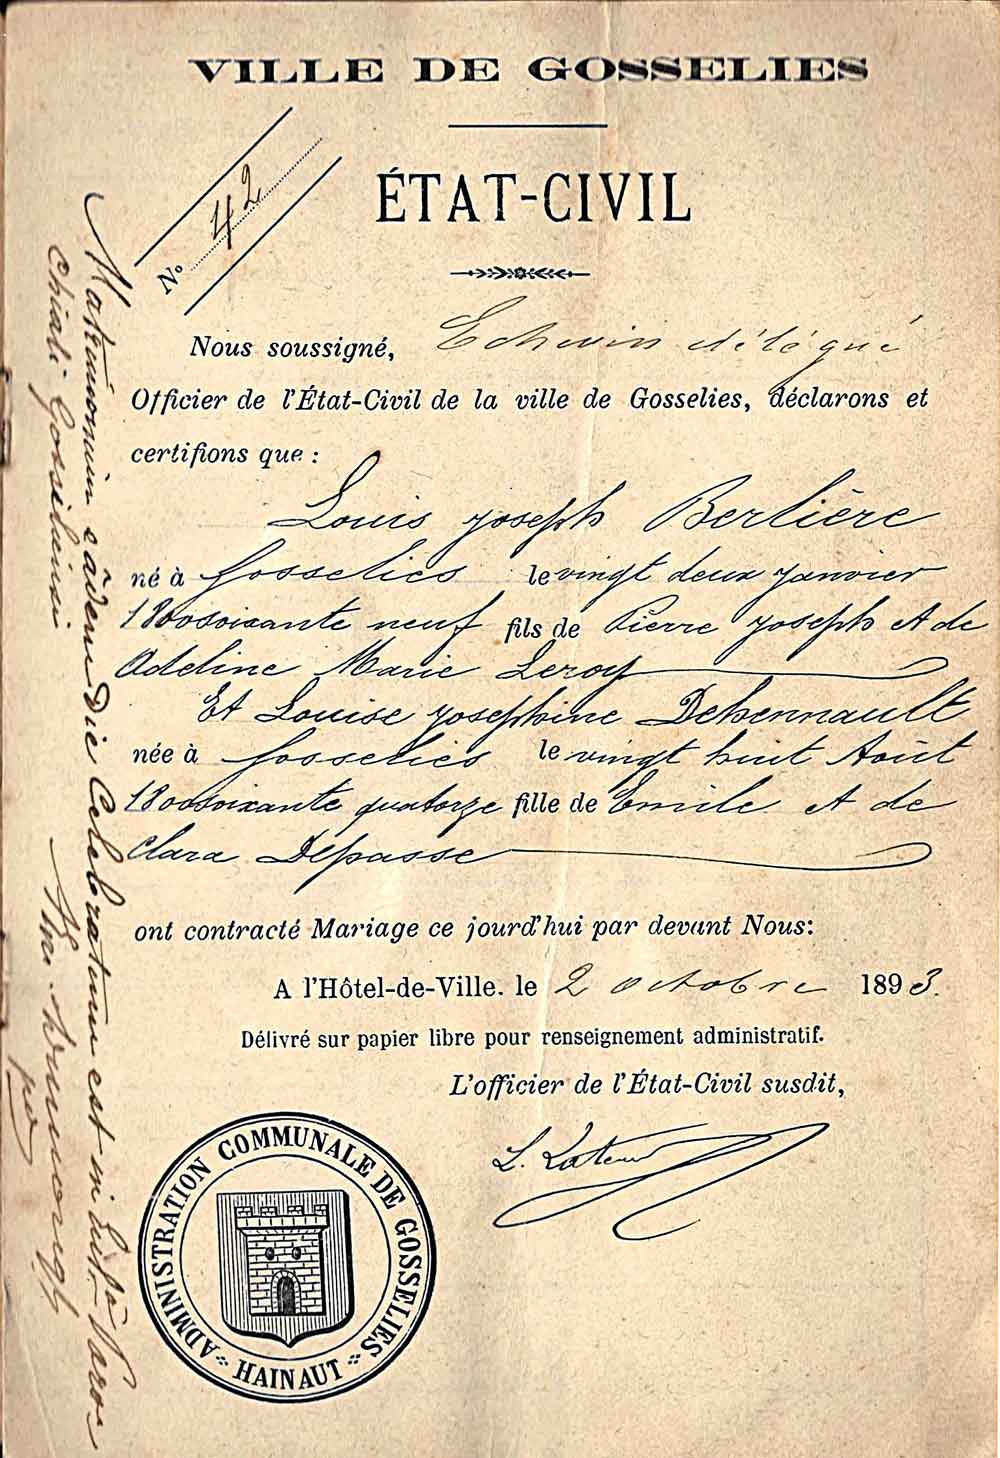 VILLE DE GOSSELIES
ÉTAT-CIVIL
N° 42
Nous soussigné, Echevin délégué
Officier de l'État-Civil de la ville de Gosselies, déclarons et
certifions que :
Louis Joseph Berlière
né à Gosselies le vingt deux Janvier
1800 soixante neuf fils de Pierre Joseph et de
Adeline Marie Leroy
Et Louise Josephine Dehennault
née à Gosselies le vingt huit Août
1800 soixante quatorze fille de Emile et de
Clara Depasse
ont contracté Mariage ce jourd'hui par devant Nous:
A l'Hôtel-de-Ville. le 2 octobre 1893.
Délivré sur papier libre pour renseignement administratif.
L'officier de l'État-Civil susdit,
ADMINISTRATION COMMUNALE DE GOSSELIES
HAINAUT
Matrimonium eâdem Die Celebratum est in